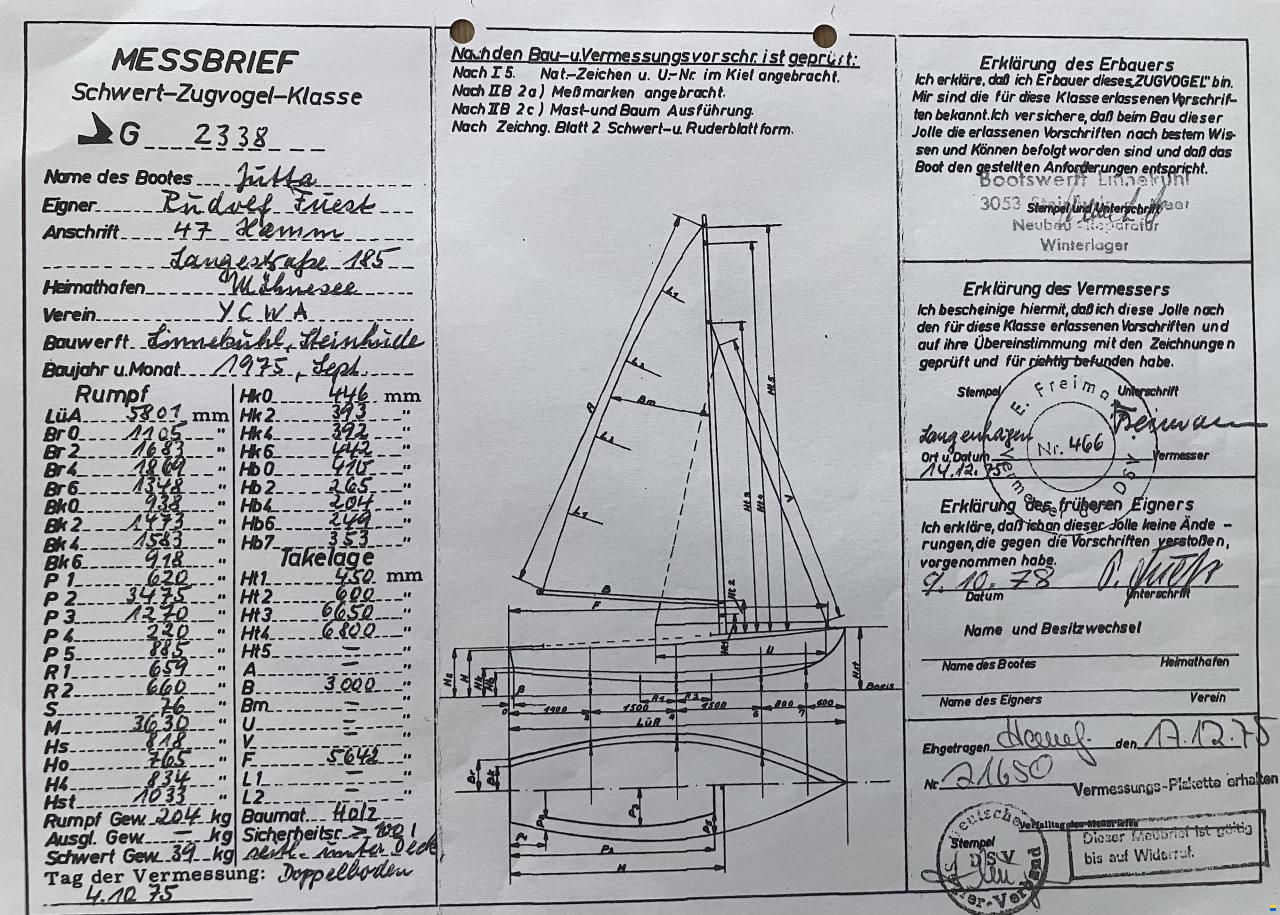 MESSBRIEF
Schwert-Zugvogel-Klasse
G 2338
Name des Bootes Jutta
Eigner Rudolf Fuest
Anschrift 47 Hamm
Langestraße 185
Heimathafen Möhnesee
Verein YCWA
Bauwerft Linnekuhl, Steinhude
Baujahr u. Monat 1975, Sept.
Rumpf
LüA 5801 mm
Br 0 1105 "
Br 2 1683 "
Br 4 1869 "
Br 6 1348 "
Bk 0 938 "
Bk 2 1473 "
Bk 4 1583 "
Bk 6 918 "
P 1 620 "
P 2 3475 "
P 3 1270 "
P 4 220 "
P 5 885 "
R 1 659 "
R 2 660 "
S 26 "
M 3630 "
Hs 818 "
Ho 765 "
H4 834 "
Hst 1033 "
Rumpf Gew. 204 kg
Ausgl. Gew. — kg
Schwert Gew. 39 kg
Tag der Vermessung:
4.10.75
Hk 0 446 mm
Hk 2 393 "
Hk 4 392 "
Hk 6 442 "
Hb 0 410 "
Hb 2 265 "
Hb 4 204 "
Hb 6 249 "
Hb 7 353 "
Takelage
Ht1 450 mm
Ht2 600 "
Ht3 6650 "
Ht4 6800 "
Ht5 — "
A — "
B 3000 "
Bm — "
U — "
V — "
F 5642 "
L1 — "
L2 — "
Baumat. Holz
Sicherheitsr. > 100 l
seitl. unter Deck
Doppelboden
Nach den Bau-u. Vermessungsvorschr. ist geprüft:
Nach I 5. Nat.-Zeichen u. U.-Nr. im Kiel angebracht.
Nach II B 2a) Meßmarken angebracht.
Nach II B 2c) Mast-und Baum Ausführung.
Nach Zeichng. Blatt 2 Schwert-u. Ruderblattform.
Bm
B
F
U
Hst
Basis
1500
1500
800
600
LüA
Br
Bk
M
Erklärung des Erbauers
Ich erkläre, daß ich Erbauer dieses „ZUGVOGEL" bin.
Mir sind die für diese Klasse erlassenen Vorschrif-
ten bekannt. Ich versichere, daß beim Bau dieser
Jolle die erlassenen Vorschriften nach bestem Wis-
sen und Können befolgt worden sind und daß das
Boot den gestellten Anforderungen entspricht.
Bootswerft Linnekuhl
3053
Stempel und Unterschrift
Neubau - Reparatur
Winterlager
Erklärung des Vermessers
Ich bescheinige hiermit, daß ich diese Jolle nach
den für diese Klasse erlassenen Vorschriften und
auf ihre Übereinstimmung mit den Zeichnungen
geprüft und für richtig befunden habe.
Stempel Unterschrift
E. Freiman
Nr. 466
Vermesser DSV
Langenhagen
14.12.75
Ort u. Datum Vermesser
Erklärung des früheren Eigners
Ich erkläre, daß ich an dieser Jolle keine Ände-
rungen, die gegen die Vorschriften verstoßen,
vorgenommen habe.
9.10.78
Datum Unterschrift
Name und Besitzwechsel
Name des Bootes Heimathafen
Name des Eigners Verein
Eingetragen den 17.12.75
Nr. 21650
Vermessungs-Plakette erhalten
Stempel
Deutscher Segler-Verband
DSV
Dieser Meßbrief ist gültig
bis auf Widerruf.